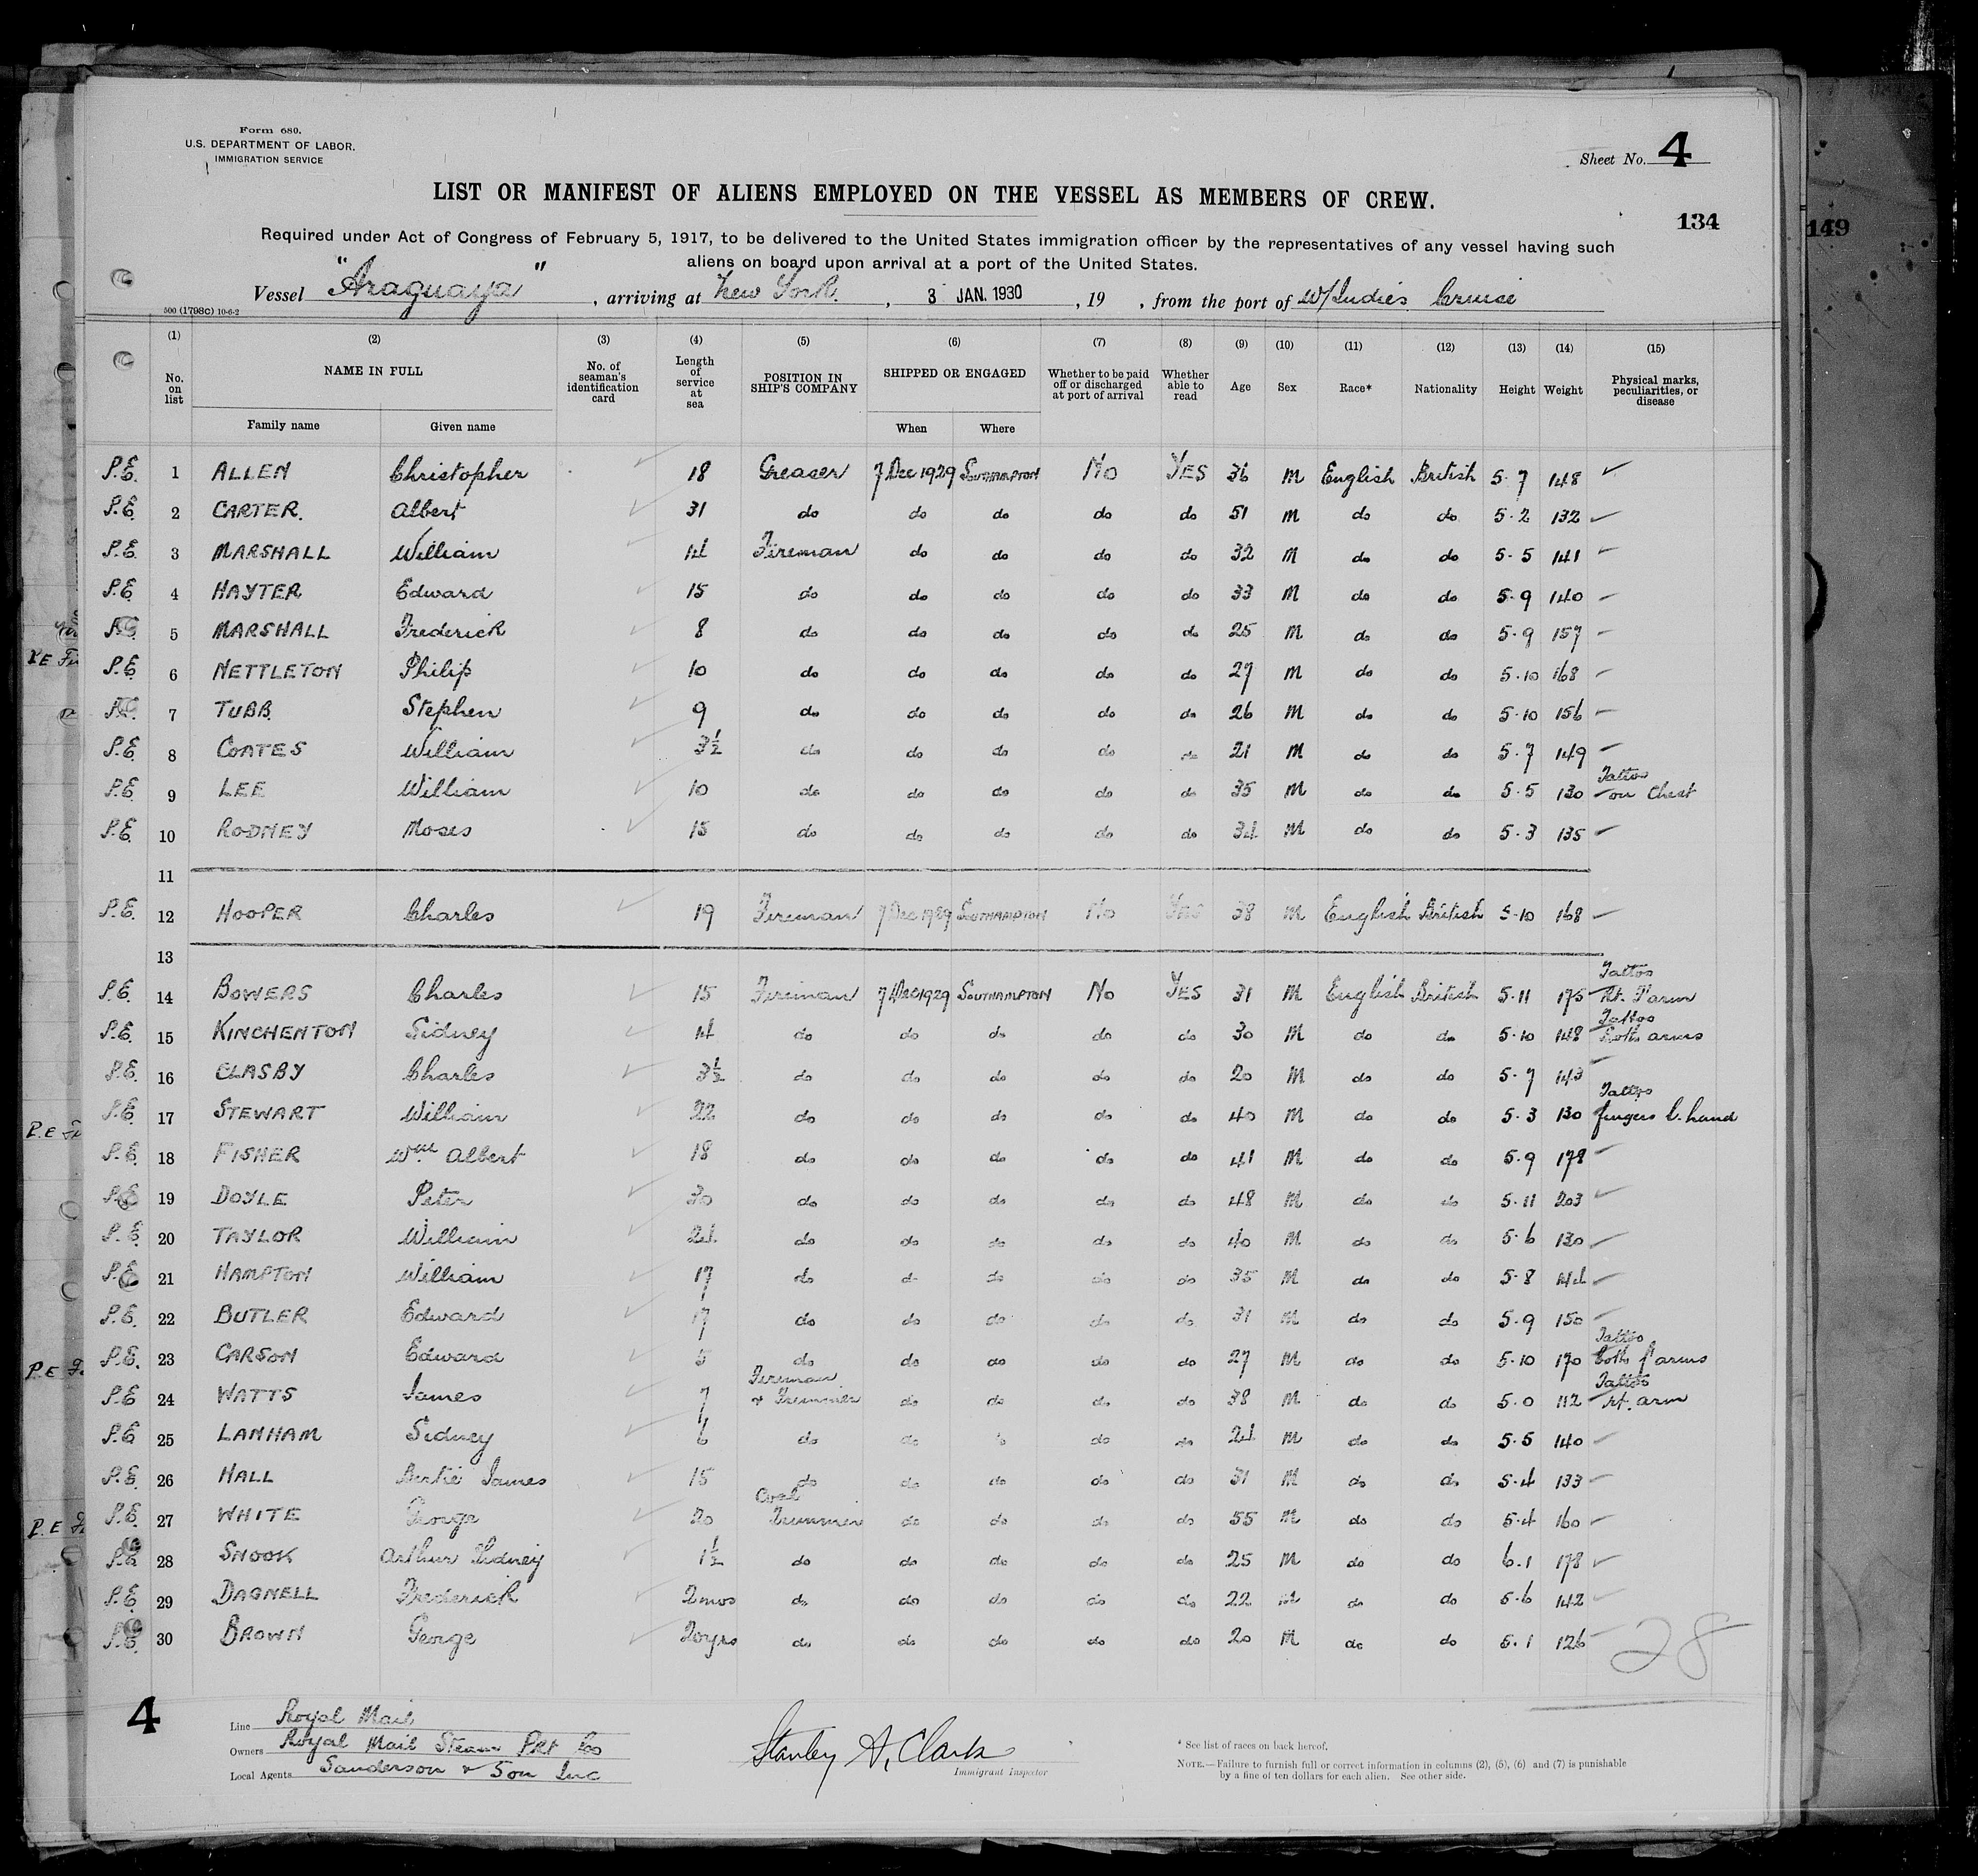 Form 680.
U.S. DEPARTMENT OF LABOR.
IMMIGRATION SERVICE
Sheet No. 4
LIST OR MANIFEST OF ALIENS EMPLOYED ON THE VESSEL AS MEMBERS OF CREW.
134
149
Required under Act of Congress of February 5, 1917, to be delivered to the United States immigration officer by the representatives of any vessel having such
aliens on board upon arrival at a port of the United States.
Vessel "Araguaya", arriving at New York, 3 JAN. 1930, 19 , from the port of W/Indies Cruise
500 (1798C) 10-6-2
(1) (2) (3) (4) (5) (6) (7) (8) (9) (10) (11) (12) (13) (14) (15)
No. on list NAME IN FULL Family name Given name No. of seaman's identification card Length of service at sea POSITION IN SHIP'S COMPANY SHIPPED OR ENGAGED When Where Whether to be paid off or discharged at port of arrival Whether able to read Age Sex Race* Nationality Height Weight Physical marks, peculiarities, or disease
P.E. 1 ALLEN Christopher 18 Greaser 7 Dec 1929 SOUTHAMPTON No YES 36 M English British 5-7 148
P.E. 2 CARTER. Albert 31 do do do do do 51 M do do 5-2 132
P.E. 3 MARSHALL William 14 Fireman do do do do 32 M do do 5-5 141
P.E. 4 HAYTER Edward 15 do do do do do 33 M do do 5-9 140
P.E. 5 MARSHALL Frederick 8 do do do do do 25 M do do 5-9 157
P.E. 6 NETTLETON Philip 10 do do do do do 27 M do do 5-10 168
P.E. 7 TUBB. Stephen 9 do do do do do 26 M do do 5-10 156
P.E. 8 COATES William 3½ do do do do do 21 M do do 5-7 149
P.E. 9 LEE William 10 do do do do do 35 M do do 5-5 130 Tattoo on Chest
P.E. 10 RODNEY Moses 15 do do do do do 34 M do do 5-3 135
11
P.E. 12 HOOPER Charles 19 Fireman 7 Dec 1929 SOUTHAMPTON No YES 38 M English British 5-10 168
13
P.E. 14 BOWERS Charles 15 Fireman 7 Dec 1929 SOUTHAMPTON No YES 31 M English British 5-11 175 Tattoo Rt. F'arm
P.E. 15 KINCHENTON Sidney 14 do do do do do 30 M do do 5-10 148 Tattoo Both arms
P.E. 16 CLASBY Charles 3½ do do do do do 20 M do do 5-7 143
P.E. 17 STEWART William 22 do do do do do 40 M do do 5-3 130 Tattoo fingers L. hand
P.E. 18 FISHER Wm Albert 18 do do do do do 41 M do do 5-9 178
P.E. 19 DOYLE Peter 30 do do do do do 48 M do do 5-11 203
P.E. 20 TAYLOR William 24 do do do do do 40 M do do 5-6 130
P.E. 21 HAMPTON William 17 do do do do do 35 M do do 5-8 144
P.E. 22 BUTLER Edward 17 do do do do do 31 M do do 5-9 150
P.E. 23 CARSON Edward 5 do do do do do 27 M do do 5-10 170 Tattoo both f'arms
P.E. 24 WATTS James 7 Fireman & Trimmer do do do do 38 M do do 5-0 112 Tattoo rt. arm
P.E. 25 LANHAM Sidney 6 do do do do do 24 M do do 5-5 140
P.E. 26 HALL Bertie James 15 do do do do do 31 M do do 5-4 133
P.E. 27 WHITE George 20 Coal Trimmer do do do do 55 M do do 5-4 160
P.E. 28 SNOOK Arthur Sidney 1½ do do do do do 25 M do do 6-1 178
P.E. 29 DAGNELL Frederick 2mos do do do do do 22 M do do 5-6 142
P.E. 30 BROWN George 20yrs do do do do do 20 M do do 5-1 126
28
4
Line Royal Mail
Owners Royal Mail Steam Pkt Co
Local Agents Sanderson & Son Inc
Stanley A. Clark
Immigrant Inspector
* See list of races on back hereof.
NOTE.—Failure to furnish full or correct information in columns (2), (5), (6) and (7) is punishable
by a fine of ten dollars for each alien. See other side.